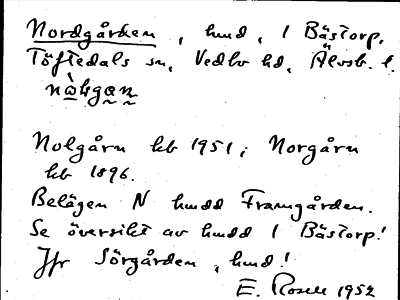 Nordgården, hmd, i Bästorp,
Töftedals sn, Vedbo hd, Älvsb. l.
nòḷgạṇ
Nolgårn kb 1951; Norgårn
kb 1896.
Belägen N hmdd Framgården.
Se översikt av hmdd i Bästorp!
Jfr Sörgården, hmd!
E. Rosell 1952